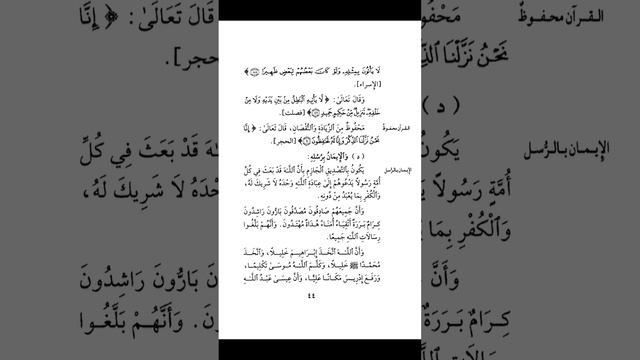 لَا يَأْتُونَ بِمِثْلِهِ وَلَوْ كَانَ بَعْضُهُمْ لِبَعْضٍ ظَهِيرًا ﴿٨٨﴾
[الإسراء].
وَقَالَ تَعَالَى: ﴿ لَّا يَأْتِيهِ الْبَاطِلُ مِنْ بَيْنِ يَدَيْهِ وَلَا مِنْ
خَلْفِهِ تَنزِيلٌ مِّنْ حَكِيمٍ حَمِيدٍ ﴿٤٢﴾ [فصلت].
القرآن محفوظ
مَحْفُوظٌ مِنَ الزِّيَادَةِ وَالنُّقْصَانِ، قَالَ تَعَالَى: ﴿ إِنَّا
نَحْنُ نَزَّلْنَا الذِّكْرَ وَإِنَّا لَهُ لَحَافِظُونَ ﴿٩﴾ [الحجر].
( د ) وَالْإِيمَانُ بِرُسُلِهِ:
الإيمان بالرسل
يَكُونُ بِالتَّصْدِيقِ الْجَازِمِ بِأَنَّ اللَّهَ قَدْ بَعَثَ فِي كُلِّ
أُمَّةٍ رَسُولاً يَدْعُوهُمْ إِلَى عِبَادَةِ اللَّهِ وَحْدَهُ لَا شَرِيكَ لَهُ،
وَالْكُفْرِ بِمَا يُعْبَدُ مِنْ دُونِهِ.
وَأَنَّ جَمِيعَهُمْ صَادِقُونَ مُصَدَّقُونَ بَارُّونَ رَاشِدُونَ
كِرَامٌ بَرَرَةٌ أَتْقِيَاءُ أُمَنَاءُ هُدَاةٌ مُهْتَدُونَ. وَأَنَّهُمْ بَلَّغُوا
رِسَالَاتِ اللَّهِ جَمِيعًا.
وَأَنَّ اللَّهَ اتَّخَذَ إِبْرَاهِيمَ خَلِيلًا، وَاتَّخَذَ
مُحَمَّدًا ﷺ خَلِيلًا، وَكَلَّمَ اللَّهُ مُوسَى تَكْلِيمًا،
وَرَفَعَ إِدْرِيسَ مَكَانًا عَلِيًّا، وَأَنَّ عِيسَى عَبْدُ اللَّهِ
٤٤